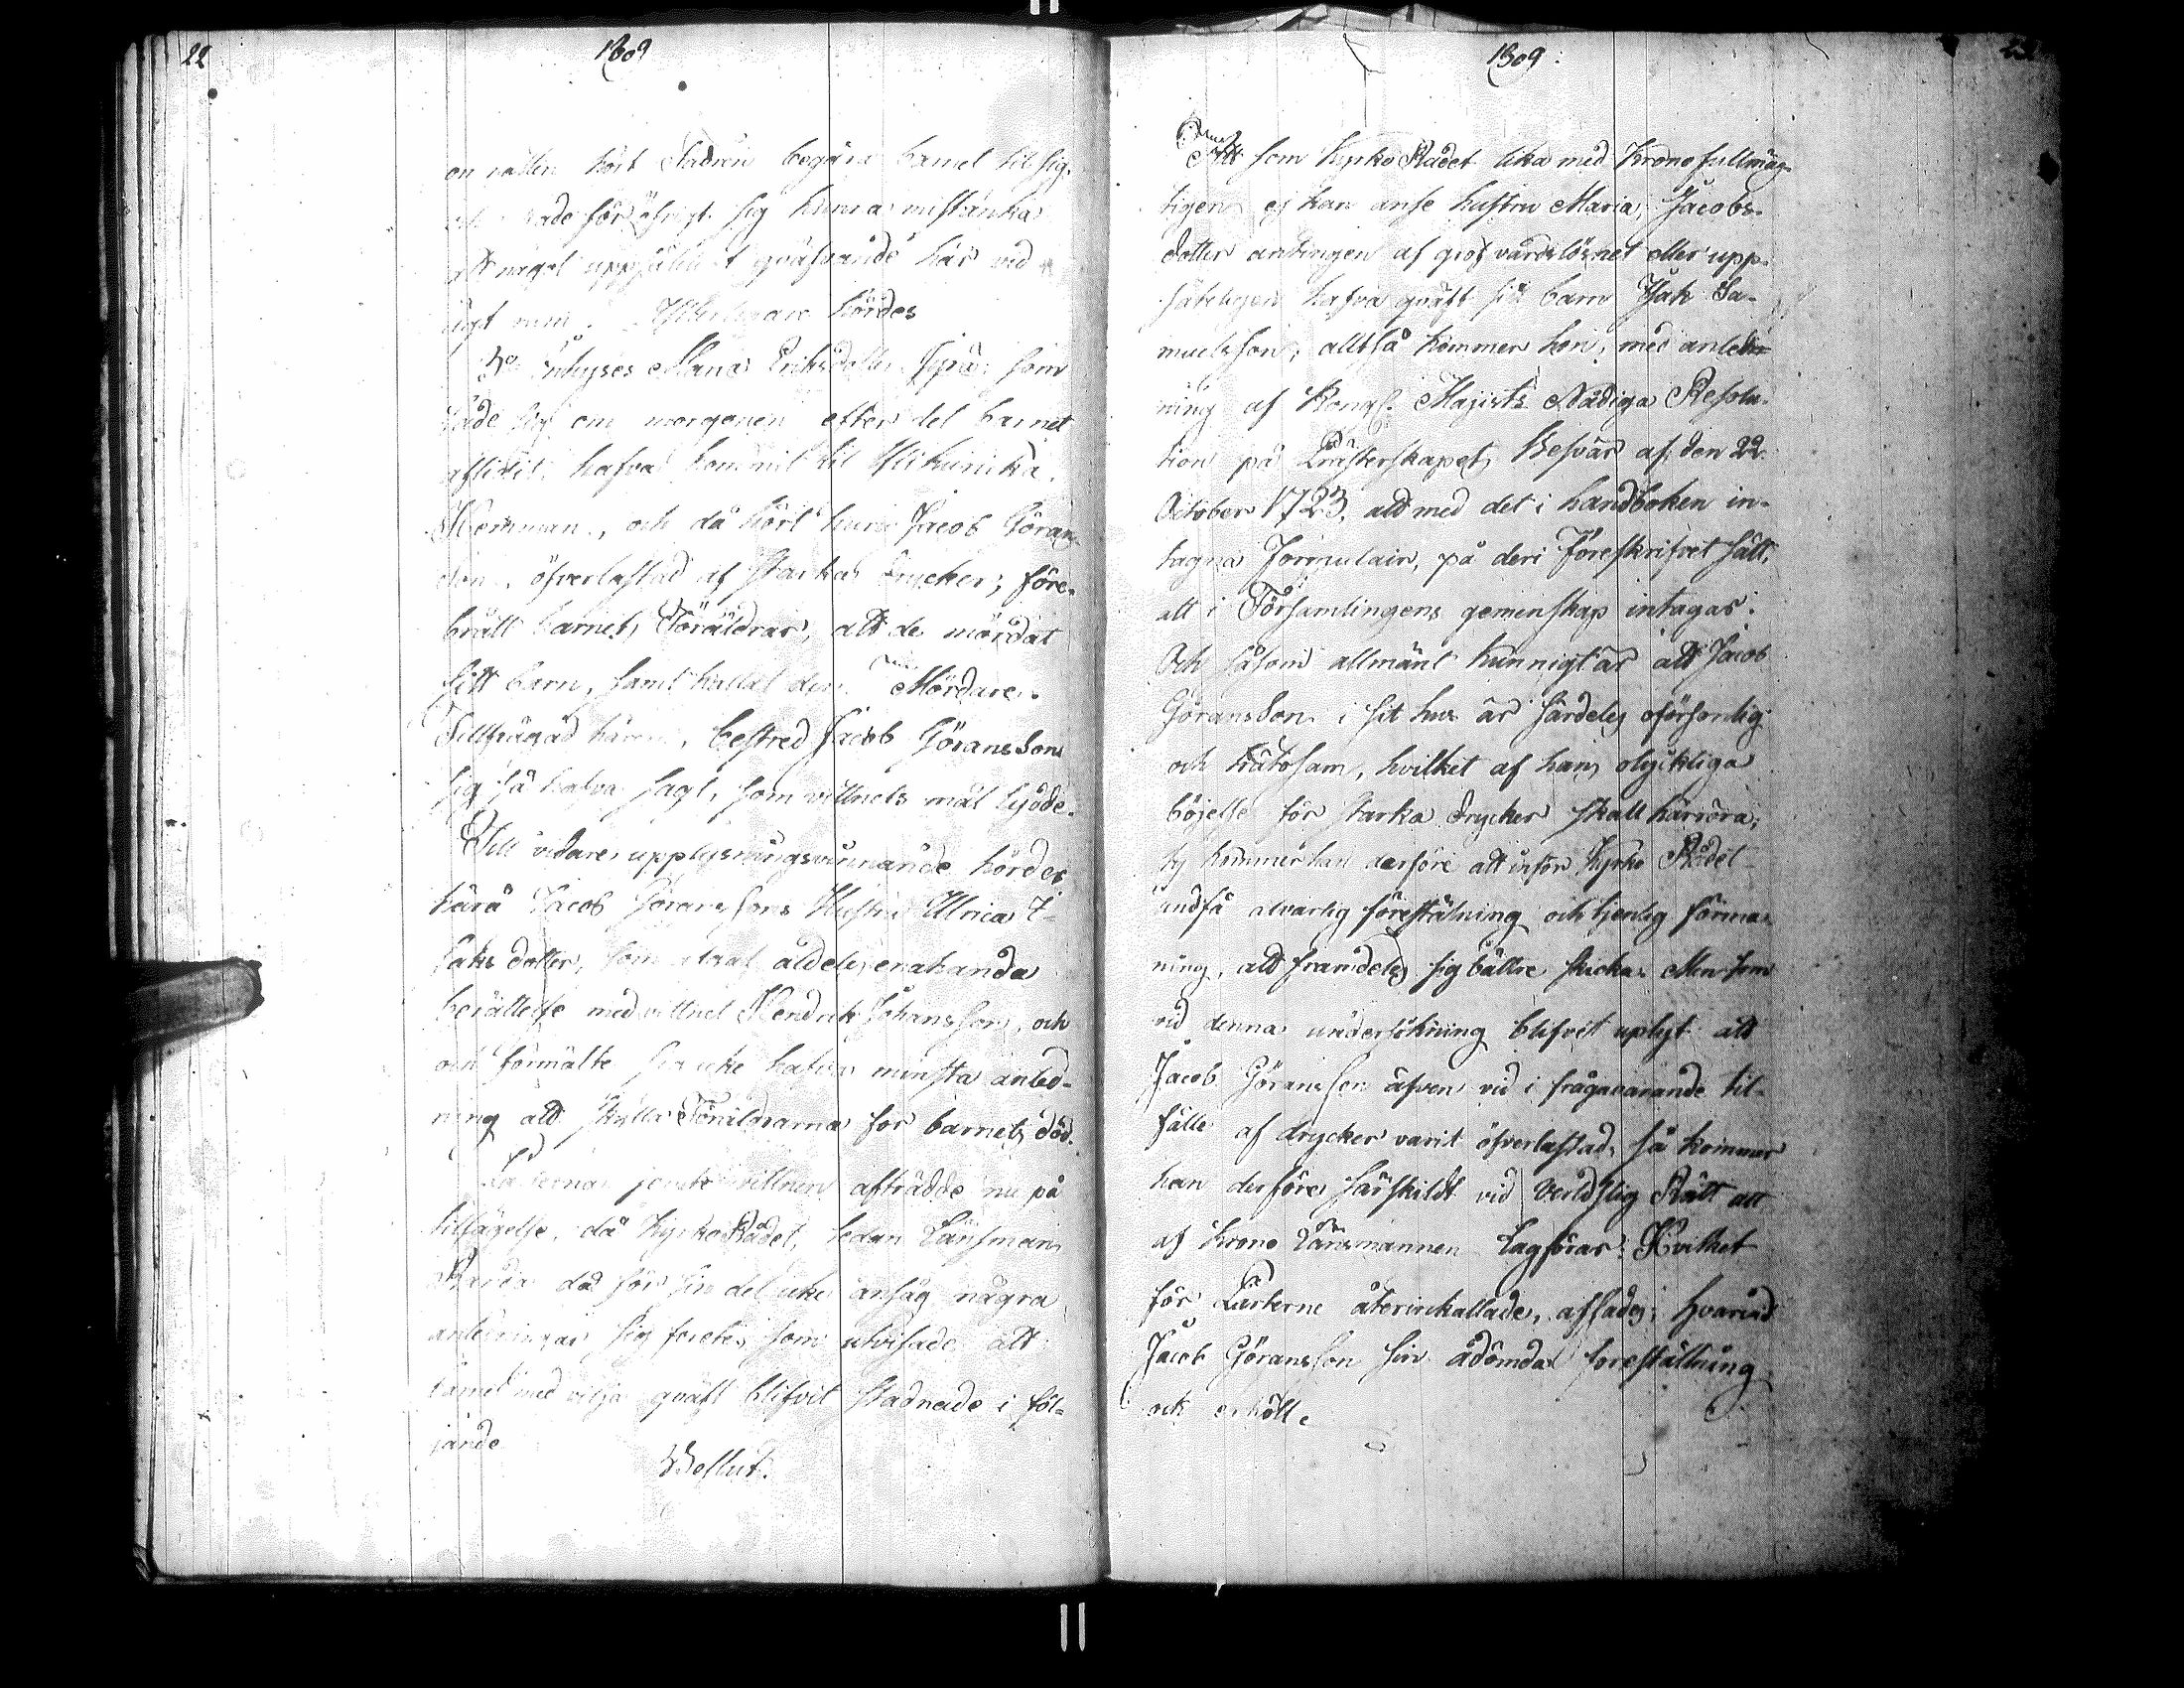 22
1809
om natten hört Fadren begära barnet til sig.
rade för öfrigt sig kunna misstänka
att något uppsåteligt qväfvande här vid
ägt rum. Ytterligare hördes
3o Inhyses Maria Eriksdotter som
sade sig om morgonen efter det barnet
aflidit, hafva kommit til
Hemman, och då hört huru Jacob Görans
Son, öfverlastad af starka drycker, före-
brått barnets Föräldrar, att de mördat
sitt barn, samt kallat dem Mördare.
Tillfrågad härom, bestred Jacob Görans Son
sig så hafva sagt, som vittnets mål lydde.
Till vidare upplysnings vinnande hördes
Jacob Göranssons Hustru Ulrica I-
saks dotter, som aldeles enahanda
berättelse med vittnet Hendrik Johansson, och
och förmälte sig icke hafva minsta anled-
ning att skylla Föräldrarna för barnets död.
Parterna jemte vittnen afträdde nu på
tillsägelse, då Kyrko Rådet, sedan Länsman
då för sin del icke ansåg några
anledningar sig förete, som utvisade att
barnet med vilja qväft blifvit stadnade i föl-
jande
Beslut.
1809.
23
Som Kyrko Rådet lika med Krono fullmäg-
tigen ej kan anse hustru Maria Jacobs-
dotter antingen af grof vårdslöshet eller upp-
såteligen hafva qväft sitt barn Isak Sa-
muelsson; alltså kommer hon, med anled-
ning af Kongl. Majsts Nådiga Resolu-
tion på Prästerskapets Besvär af den 22
October 1723, att med det i handboken in-
tagna Formulair, på deri föreskrifvet sätt,
att i Församlingens gemenskap intagas.
Och såsom allmänt kunnigt är att Jacob
Görans Son i sit hus är särdeles oförsonlig
och trätosam, hvilket af hans olyckliga
böjelse för starka drycker skall härröra;
ty kommer han derföre att inför Kyrko Rådet
undfå alvarlig föreställning och tjenlig förma-
ning, att framdeles sig bättre skicka. Men som
vid denna undersökning blifvit uplyst att
Jacob Göransson äfven vid i frågavarande til-
fälle af drycker varit öfverlastad, så kommer
han derföre särskildt vid Verldslig Rätt att
af Krono Länsmannen Lagföras; Hvilket
för Parterne återinkallade, afsades; hvarvid
Jacob Göransson sin ådömda föreställning
ock erhöllt.